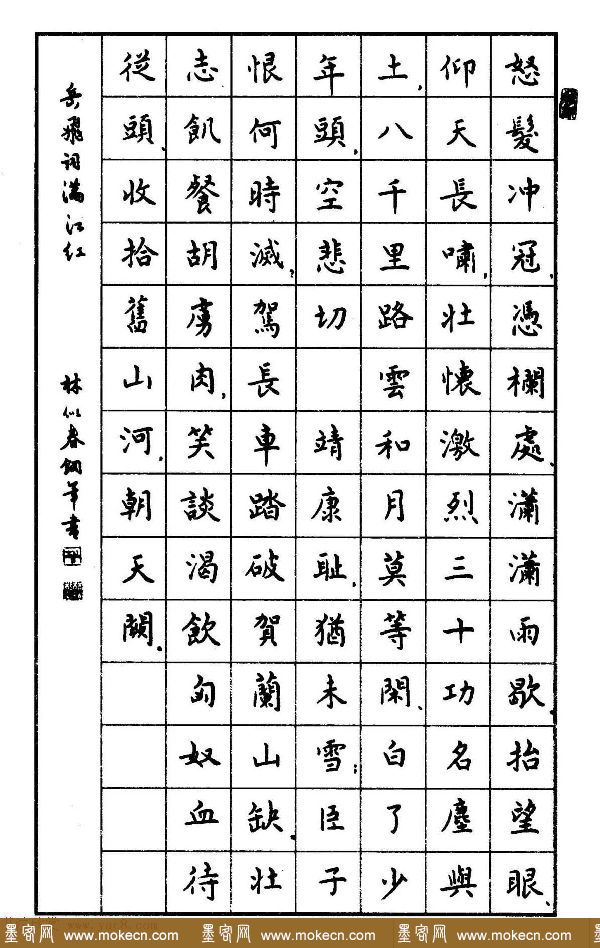 怒髮冲冠、憑欄處、瀟瀟雨歇、抬望眼、
仰天長嘯、壯懷激烈、三十功名塵與
土、八千里路雲和月、莫等閑、白了少
年頭、空悲切 靖康耻、猶未雪；臣子
恨何時滅、駕長車踏破賀蘭山缺、壯
志飢餐胡虜肉、笑談渴飲匈奴血待
從頭、收拾舊山河、朝天闕、
岳飛詞滿江红 林似春鋼筆書
墨客网 www.mokecn.com 墨客网 www.mokecn.com 墨客网 www.mokecn.com